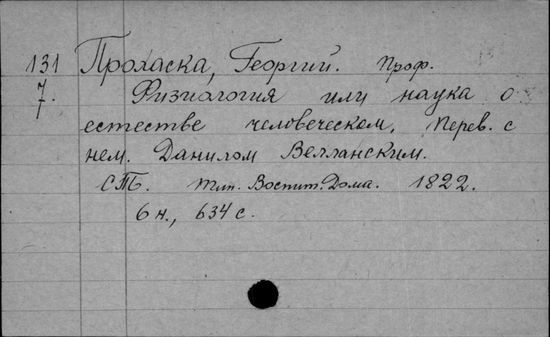 131 Прохаска, Георгий. Проф.
7. Физиология или наука о
естестве человеческом. Перев. с
нем. Данилом Велланским.
СПБ. Тип. Воспит. Дома. 1822.
6 н., 634 с.